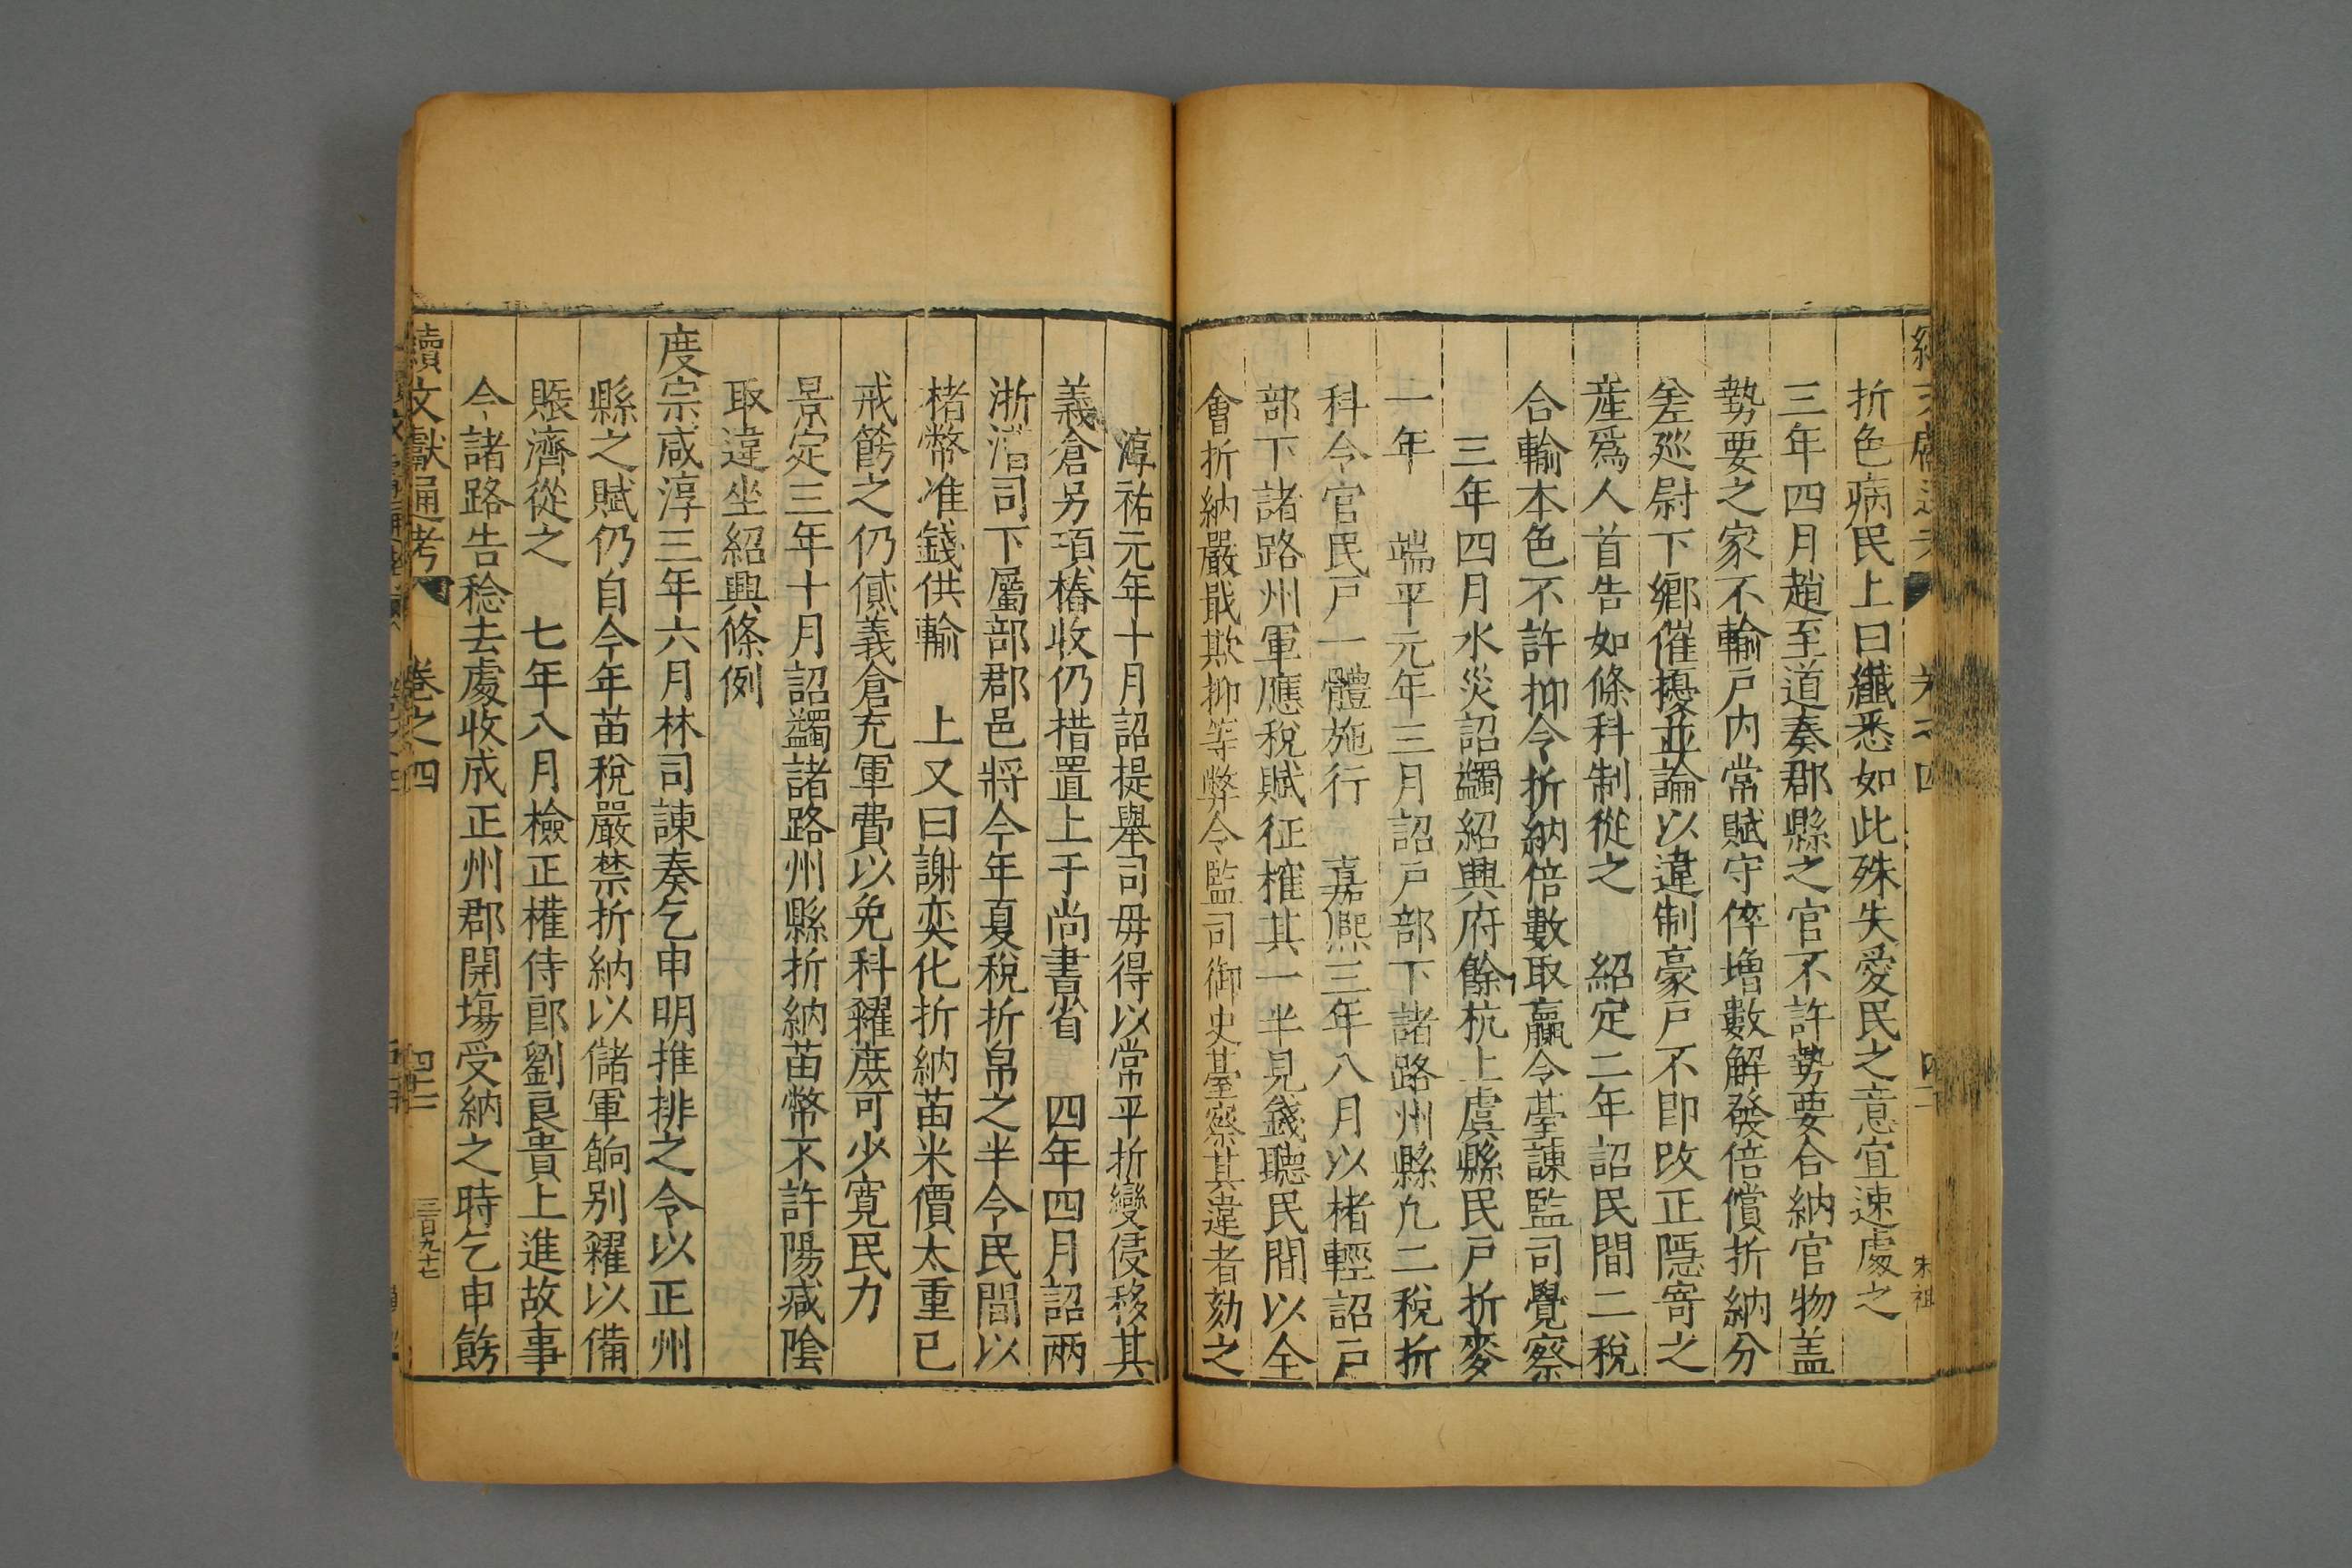 折色病民上曰纖悉如此殊失愛民之意宜速處之
三年四月趙至道奏郡縣之官不許勢要合納官物蓋
勢要之家不輸戶内常賦守倅增數解發倍償折納分
差廵尉下鄉催擾並論以違制豪戸不即改正隱寄之
產爲人首告如條科制從之 紹定二年詔民間二稅
合輸本色不許抑令折納倍數取贏令臺諫監司覺察
三年四月水災詔蠲紹興府餘杭上虞縣民戸折麥
一年 端平元年三月詔戸部下諸路州縣九二稅折
科令官民戸一體施行 嘉熈三年八月以楮輕詔戸
部下諸路州軍應稅賦征榷其一半見錢聽民間以全
會折納嚴戢欺抑等弊令監司御史臺察其違者劾之
淳祐元年十月詔提舉司毋得以常平折變侵移其
義倉另項樁收仍措置上于尚書省 四年四月詔兩
浙漕司下屬部郡邑將今年夏稅折帛之半令民間以
楮幣准錢供輸 上又曰謝奕化折納苗米價太重已
戒飭之仍貸義倉充軍費以免科糴庶可少寬民力
景定三年十月詔蠲諸路州縣折納苗幣不許陽減隂
取違坐紹興條例
度宗咸淳三年六月林司諫奏乞申明推排之令以正州
縣之賦仍自今年苗稅嚴禁折納以儲軍餉别糴以備
賑濟從之 七年八月檢正權侍郎劉良貴上進故事
今諸路告稔去處收成正州郡開塲受納之時乞申飭
續文獻通考 卷之四 四十二 三百九十七